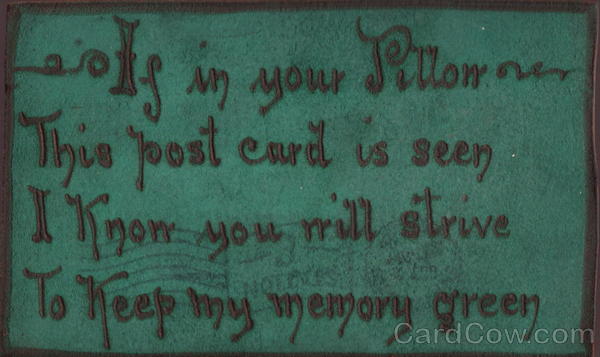 If in your Pillow
This post card is seen
I Know you will strive
To Keep my memory green
CardCow.com